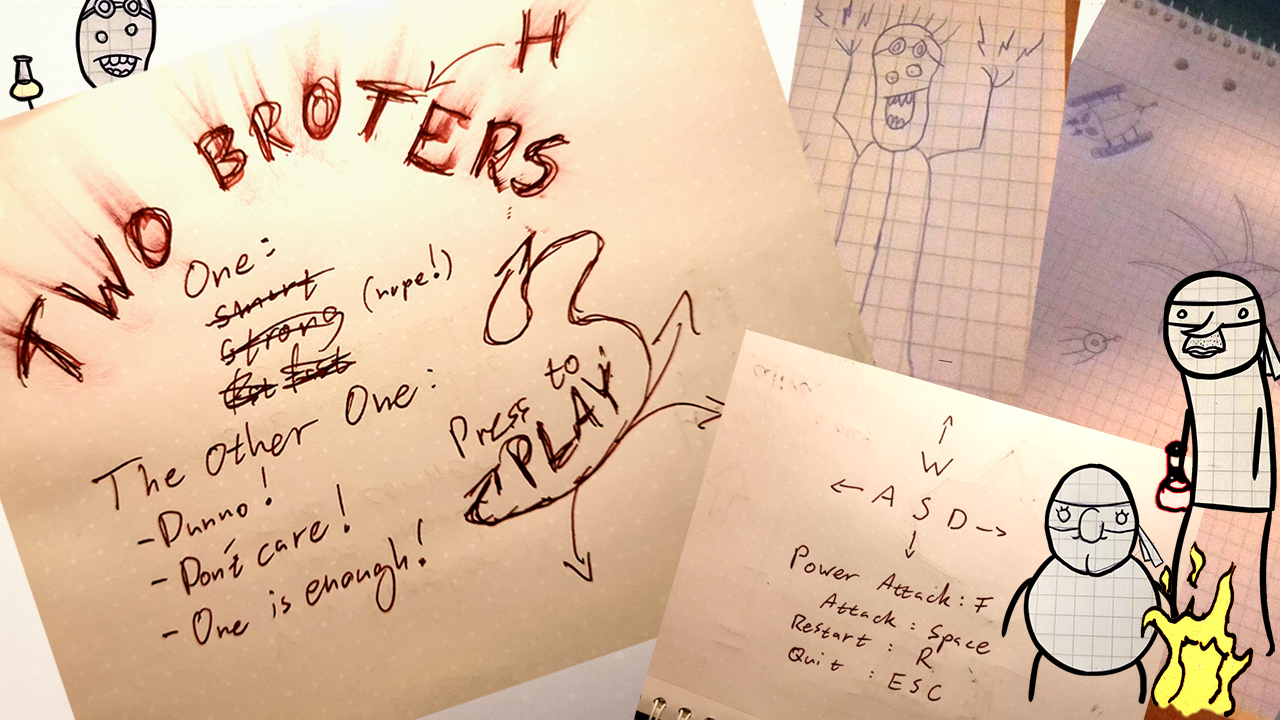 H
TWO BROTERS
One:
smart
strong (nope!)
The Other One:
- Dunno!
- Don't care!
- One is enough!
Press to
PLAY!
W
A S D
Power Attack: F
Attack: Space
Restart: R
Quit: ESC